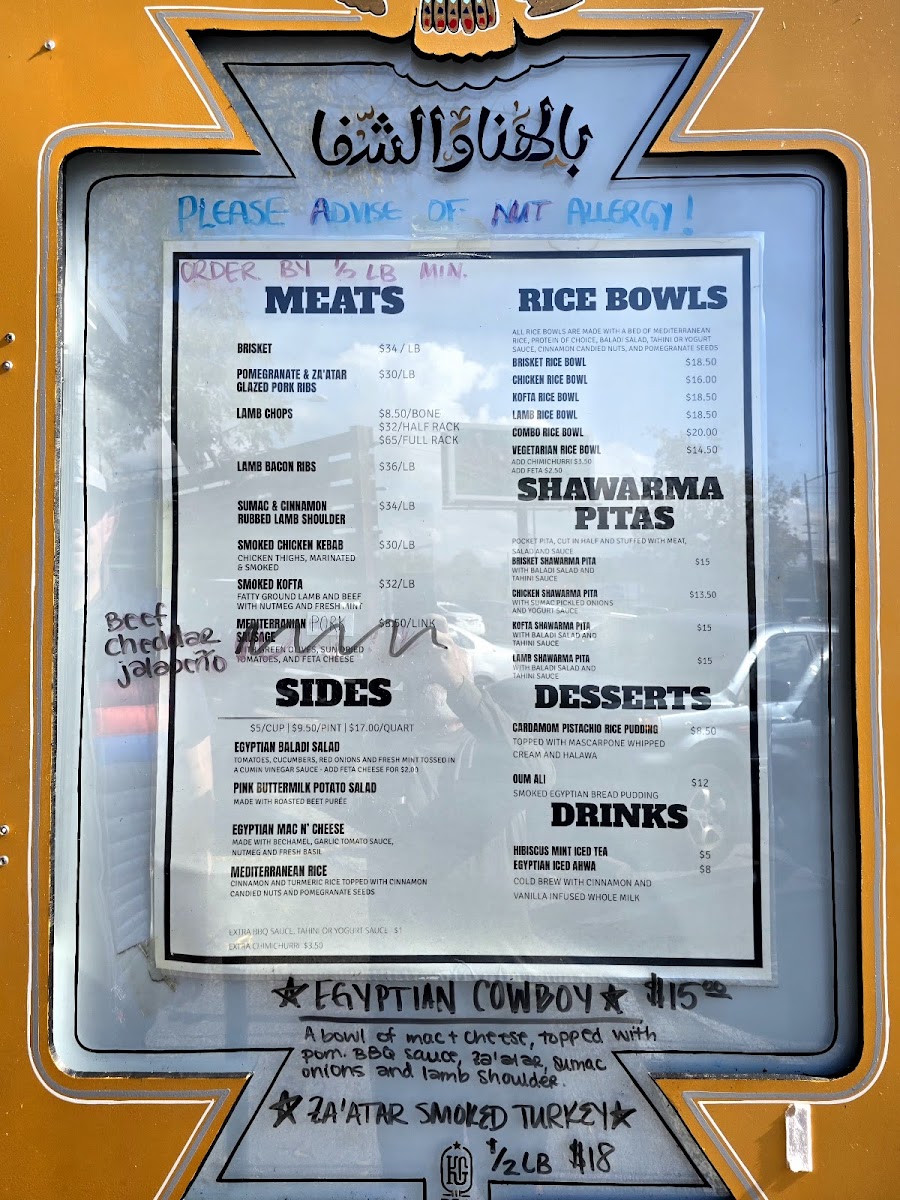 بالهنا والشفا
PLEASE ADVISE OF NUT ALLERGY!
ORDER BY 1/2 LB MIN.
MEATS
BRISKET $34 / LB
POMEGRANATE & ZA'ATAR $30/LB
GLAZED PORK RIBS
LAMB CHOPS $8.50/BONE
$32/HALF RACK
$65/FULL RACK
LAMB BACON RIBS $36/LB
SUMAC & CINNAMON $34/LB
RUBBED LAMB SHOULDER
SMOKED CHICKEN KEBAB $30/LB
CHICKEN THIGHS, MARINATED
& SMOKED
SMOKED KOFTA $32/LB
FATTY GROUND LAMB AND BEEF
WITH NUTMEG AND FRESH MINT
MEDITERRANIAN PORK $8.50/LINK
SAUSAGE
GREEN OLIVES, SUN DRIED
TOMATOES, AND FETA CHEESE
Beef
cheddar
jalapeño
SIDES
$5/CUP | $9.50/PINT | $17.00/QUART
EGYPTIAN BALADI SALAD
TOMATOES, CUCUMBERS, RED ONIONS AND FRESH MINT TOSSED IN
A CUMIN VINEGAR SAUCE - ADD FETA CHEESE FOR $2.00
PINK BUTTERMILK POTATO SALAD
MADE WITH ROASTED BEET PURÉE
EGYPTIAN MAC N' CHEESE
MADE WITH BECHAMEL, GARLIC TOMATO SAUCE,
NUTMEG AND FRESH BASIL
MEDITERRANEAN RICE
CINNAMON AND TURMERIC RICE TOPPED WITH CINNAMON
CANDIED NUTS AND POMEGRANATE SEEDS
EXTRA BBQ SAUCE, TAHINI OR YOGURT SAUCE $1
EXTRA CHIMICHURRI $3.50
RICE BOWLS
ALL RICE BOWLS ARE MADE WITH A BED OF MEDITERRANEAN
RICE, PROTEIN OF CHOICE, BALADI SALAD, TAHINI OR YOGURT
SAUCE, CINNAMON CANDIED NUTS, AND POMEGRANATE SEEDS
BRISKET RICE BOWL $18.50
CHICKEN RICE BOWL $16.00
KOFTA RICE BOWL $18.50
LAMB RICE BOWL $18.50
COMBO RICE BOWL $20.00
VEGETARIAN RICE BOWL $14.50
ADD CHIMICHURRI $3.50
ADD FETA $2.50
SHAWARMA
PITAS
POCKET PITA, CUT IN HALF AND STUFFED WITH MEAT,
SALAD AND SAUCE
BRISKET SHAWARMA PITA $15
WITH BALADI SALAD AND
TAHINI SAUCE
CHICKEN SHAWARMA PITA $13.50
WITH SUMAC PICKLED ONIONS
AND YOGURT SAUCE
KOFTA SHAWARMA PITA $15
WITH BALADI SALAD AND
TAHINI SAUCE
LAMB SHAWARMA PITA $15
WITH BALADI SALAD AND
TAHINI SAUCE
DESSERTS
CARDAMOM PISTACHIO RICE PUDDING $8.50
TOPPED WITH MASCARPONE WHIPPED
CREAM AND HALAWA
OUM ALI $12
SMOKED EGYPTIAN BREAD PUDDING
DRINKS
HIBISCUS MINT ICED TEA $5
EGYPTIAN ICED AHWA $8
COLD BREW WITH CINNAMON AND
VANILLA INFUSED WHOLE MILK
★EGYPTIAN COWBOY★ $15.00
A bowl of mac + cheese, topped with
pom. BBQ sauce, za'atar, sumac
onions and lamb shoulder.
★ZA'ATAR SMOKED TURKEY★
1/2 LB $18
KG